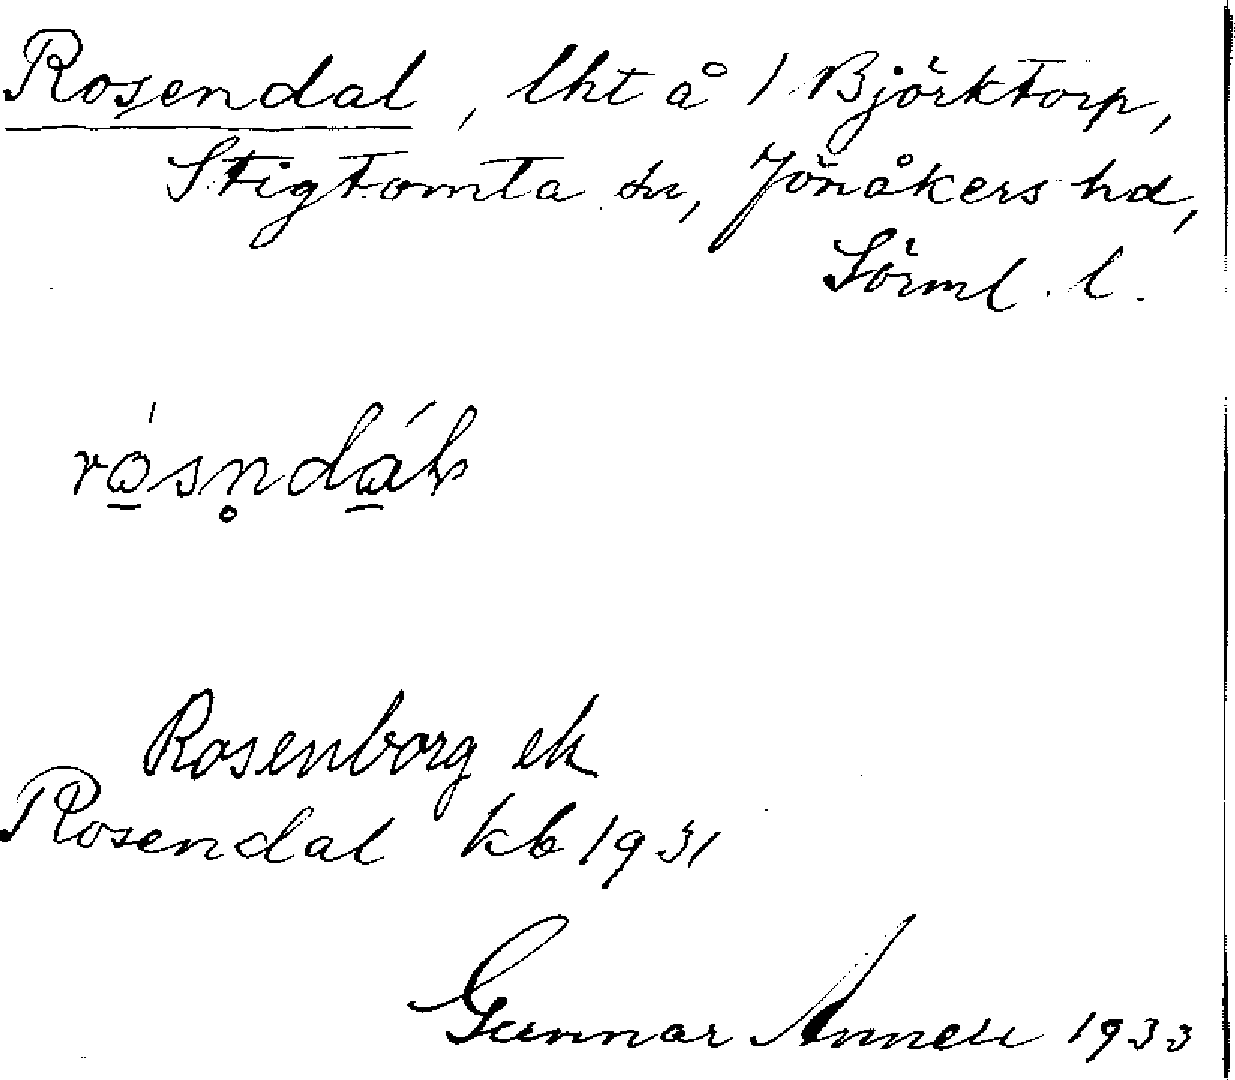 Rosendal, lht å 1 Björktorp,
Stigtomta sn, Jönåkers hd,
Sörml. l.
Rosenborg ek
Rosendal kb 1931
Gunnar Annell 1933